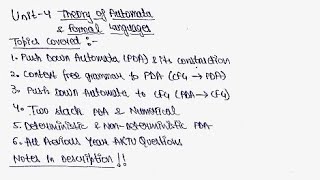 Unit-4 Theory of Automata
& Formal Languages
Topics Covered :-
1. Push Down Automata (PDA) & its construction
2. Context free grammar to PDA (CFG → PDA)
3. Push Down Automata to CFG (PDA → CFG)
4. Two Stack PDA & Numerical
5. Deterministic & Non-Deterministic PDA
6. All Previous Year AKTU Questions
Notes In Description !!